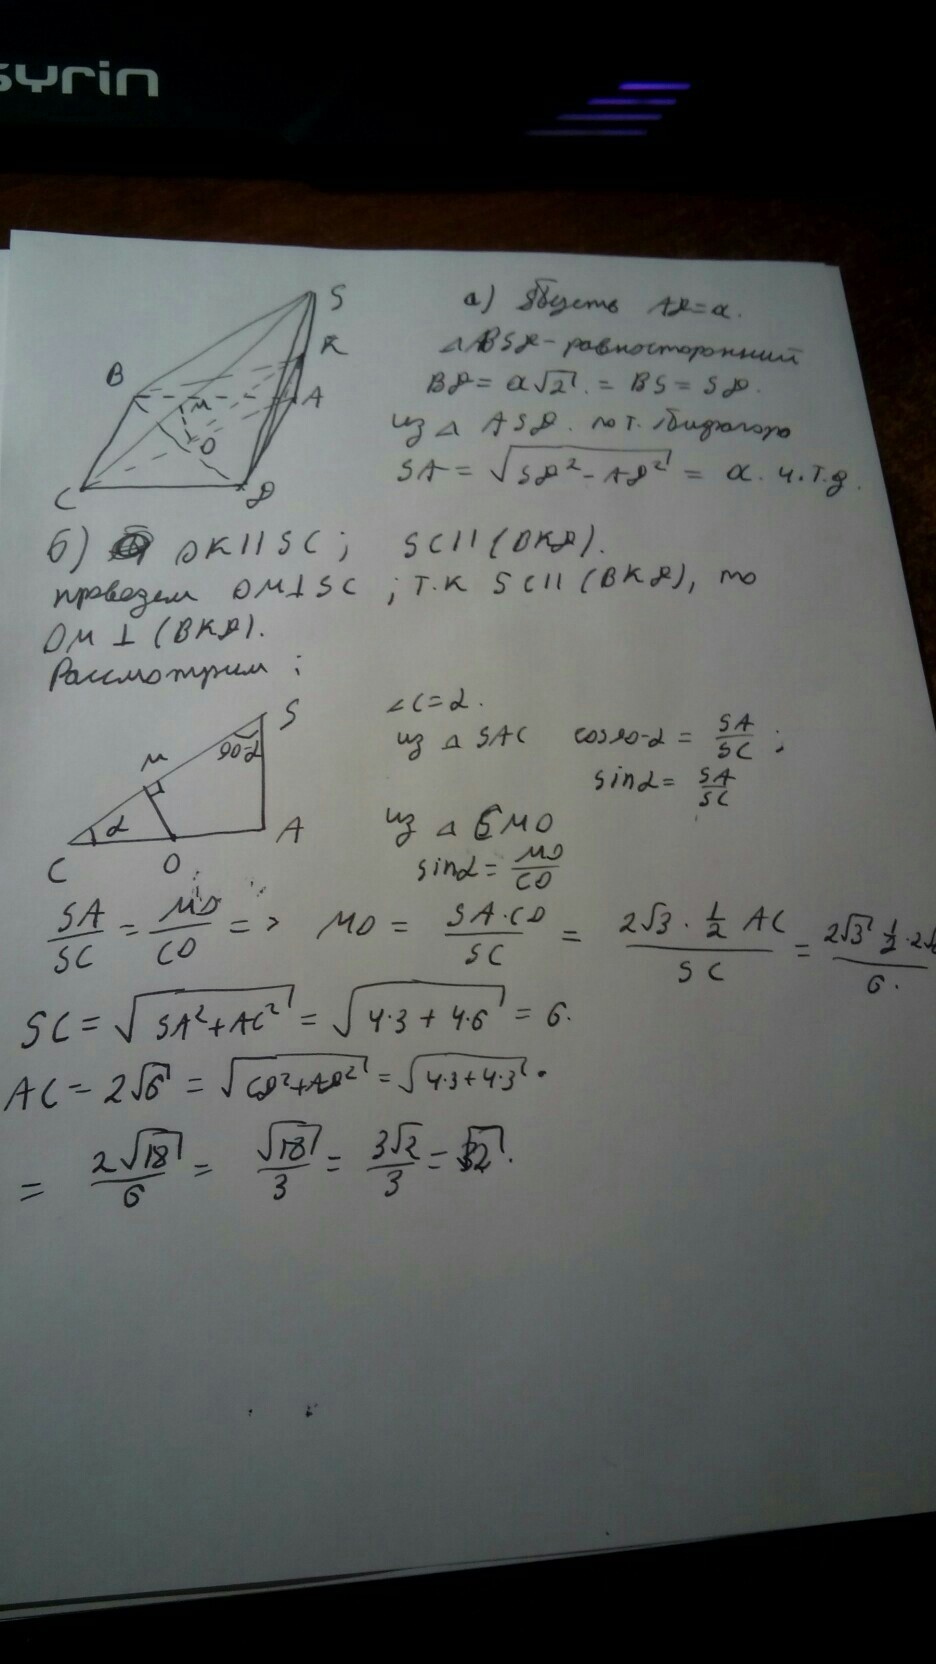 syrin
S
K
B
A
M
O
C
D
а) Пусть AD=a.
△ BSD - равносторонний
BD = a√2 = BS = SD.
из △ ASD. по т. Пифагора
SA = √(SD² - AD²) = a. ч.т.д.
б) OK || SC; SC || (BKD).
проведем OM ⊥ SC; т.к SC || (BKD), то
OM ⊥ (BKD).
Рассмотрим:
S
90-α
M
α
C
O
A
∠C=α.
из △ SAC cos90-α = SA/SC;
sinα = SA/SC
из △ CMO
sinα = MO/CO
SA/SC = MO/CO => MO = SA·CO/SC = 2√3 · 1/2 AC/SC = 2√3 · 1/2 · 2√6/6.
SC = √(SA²+AC²) = √(4·3 + 4·6) = 6.
AC = 2√6 = √(CD²+AD²) = √(4·3+4·3).
= 2√18/6 = √18/3 = 3√2/3 = √2.